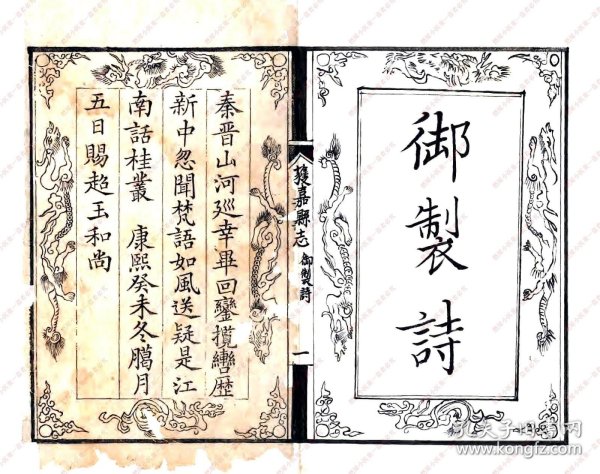 御製詩
獲嘉縣志 御製詩 一
秦晉山河巡幸畢回鑾攬轡歷
新中忽聞梵語如風送疑是江
南話桂叢 康熙癸未冬臈月
五日賜超玉和尚
孔夫子旧书网
www.kongfz.com